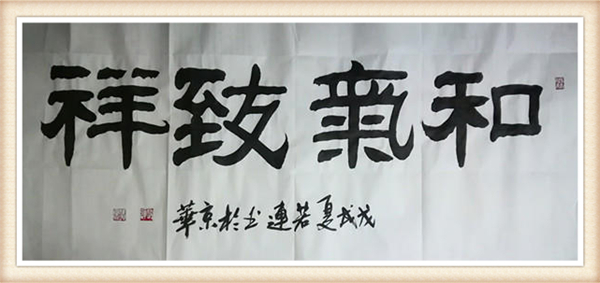 和氣致祥
戊戌夏若連书於京華